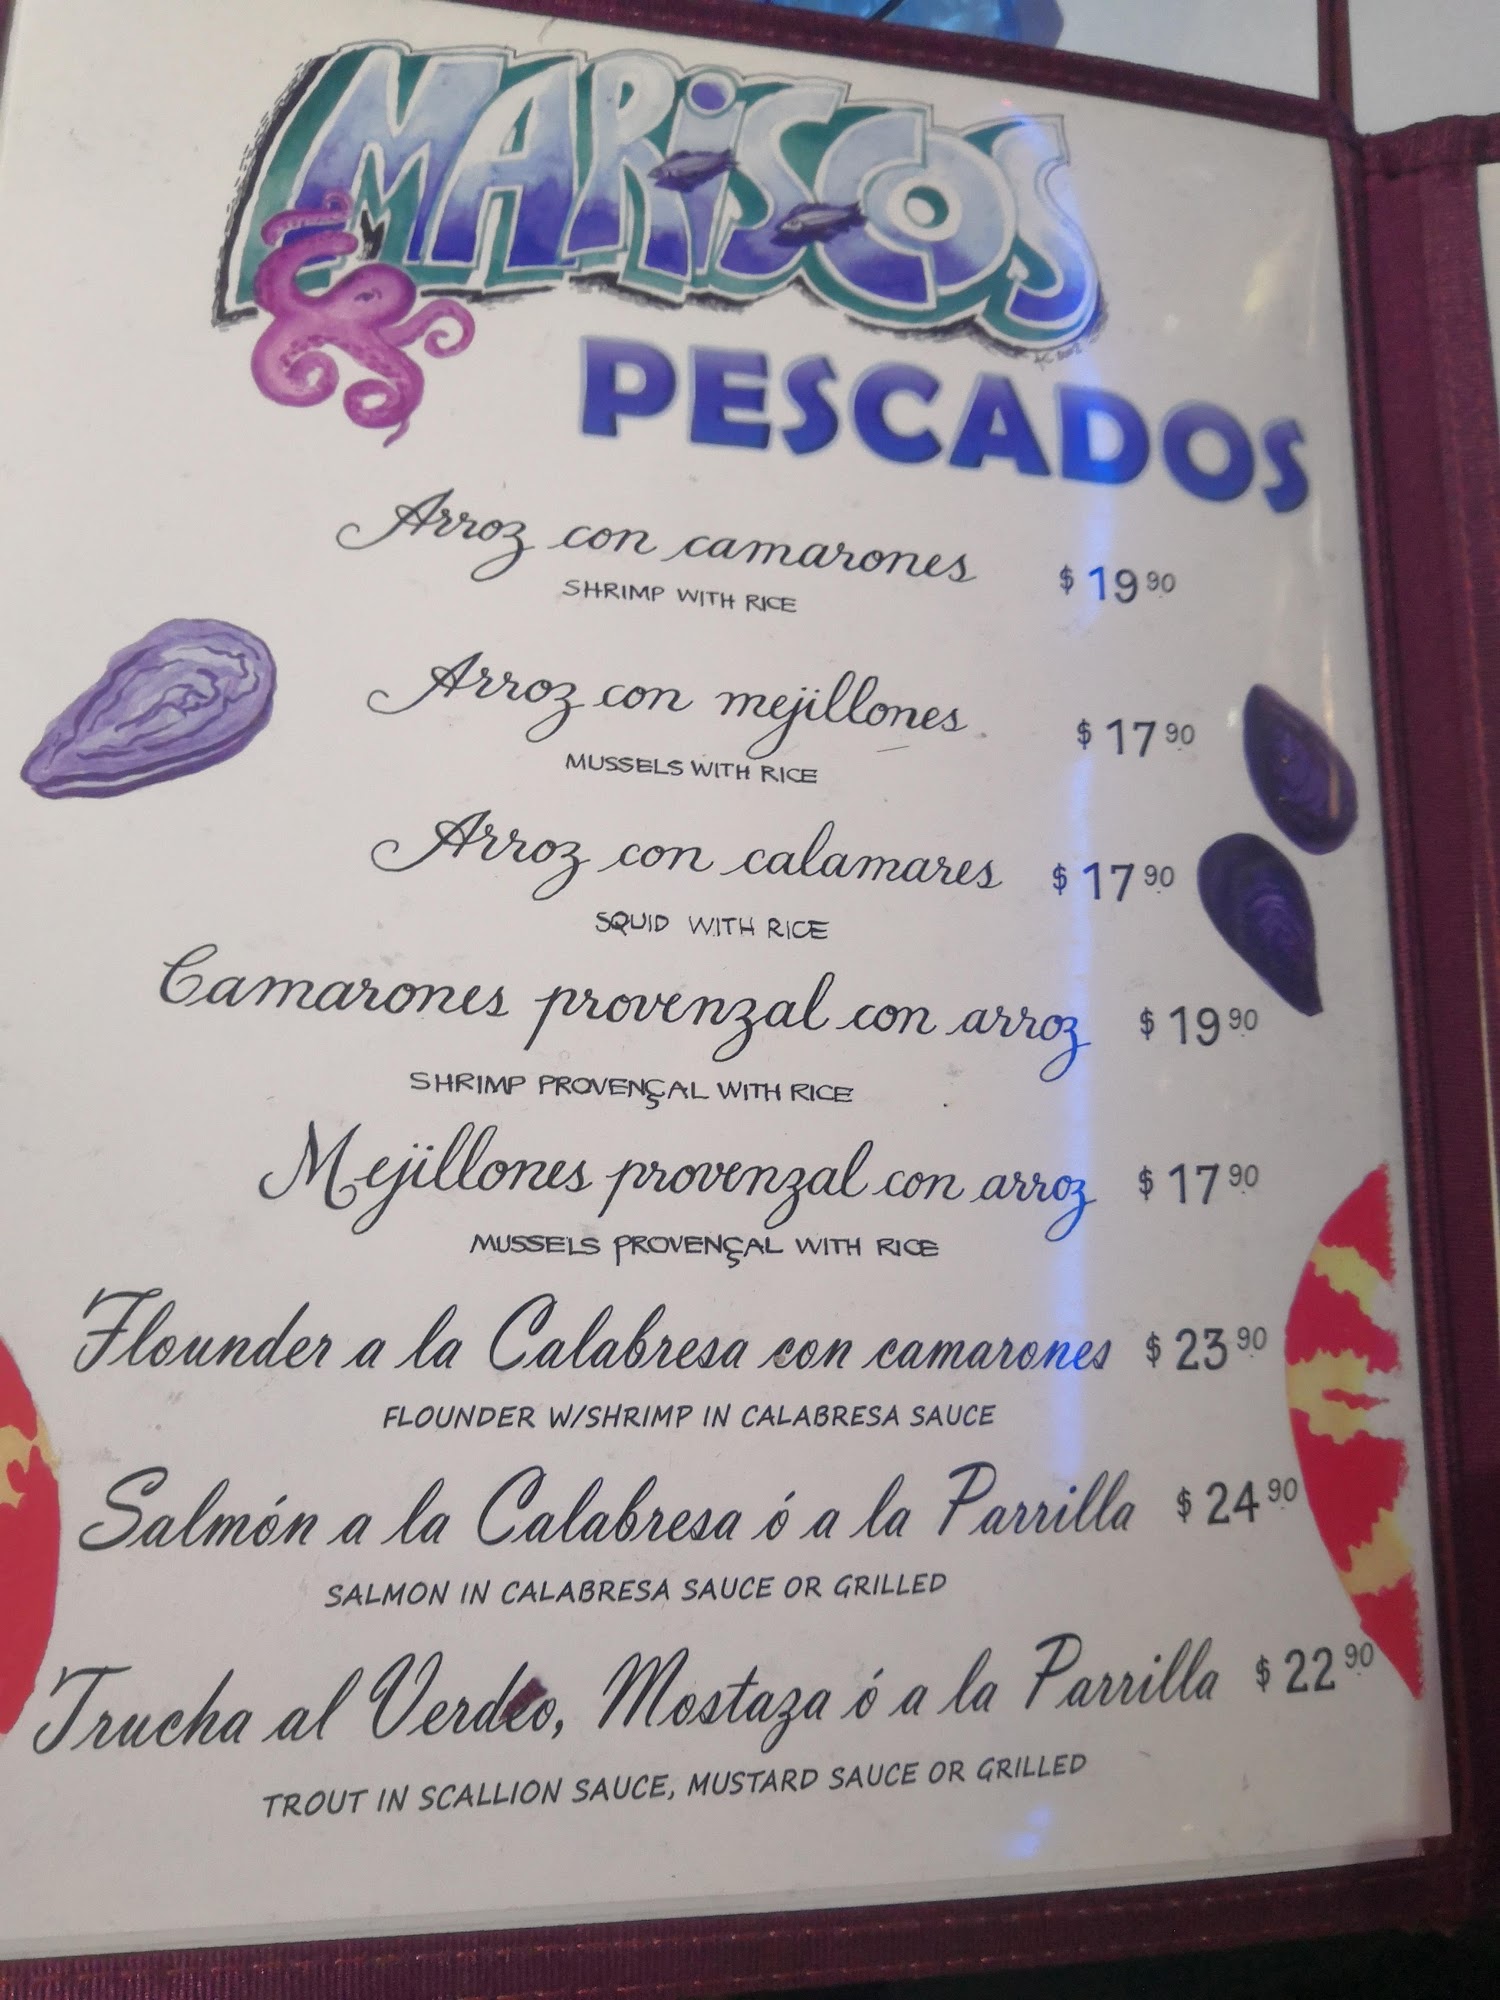 MARiSCOS
PESCADOS
Arroz con camarones $ 19.90
SHRIMP WITH RICE
Arroz con mejillones $ 17.90
MUSSELS WITH RICE
Arroz con calamares $ 17.90
SQUID WITH RICE
Camarones provenzal con arroz $ 19.90
SHRIMP PROVENÇAL WITH RICE
Mejillones provenzal con arroz $ 17.90
MUSSELS PROVENÇAL WITH RICE
Flounder a la Calabresa con camarones $ 23.90
FLOUNDER W/SHRIMP IN CALABRESA SAUCE
Salmón a la Calabresa ó a la Parrilla $ 24.90
SALMON IN CALABRESA SAUCE OR GRILLED
Trucha al Verdeo, Mostaza ó a la Parrilla $ 22.90
TROUT IN SCALLION SAUCE, MUSTARD SAUCE OR GRILLED